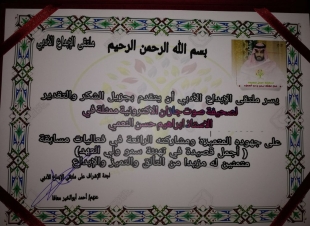 ملتقى الإبداع الأدبي
بسم الله الرحمن الرحيم
يسر ملتقى الإبداع الأدبي أن يتقدم بجزيل الشكر والتقدير
لصحيفة صوت جازان الإلكترونية ممثلة في
الأستاذ ابراهيم حسن النعمي
على جهوده المتميزة ومشاركته الرائعة في فعاليات مسابقة
( أجمل قصيدة في تهنئة سمو ولي العهد )
متمنين له مزيدا من التألق والتميز والإبداع
لجنة الإشراف على ملتقى الإبداع الأدبي